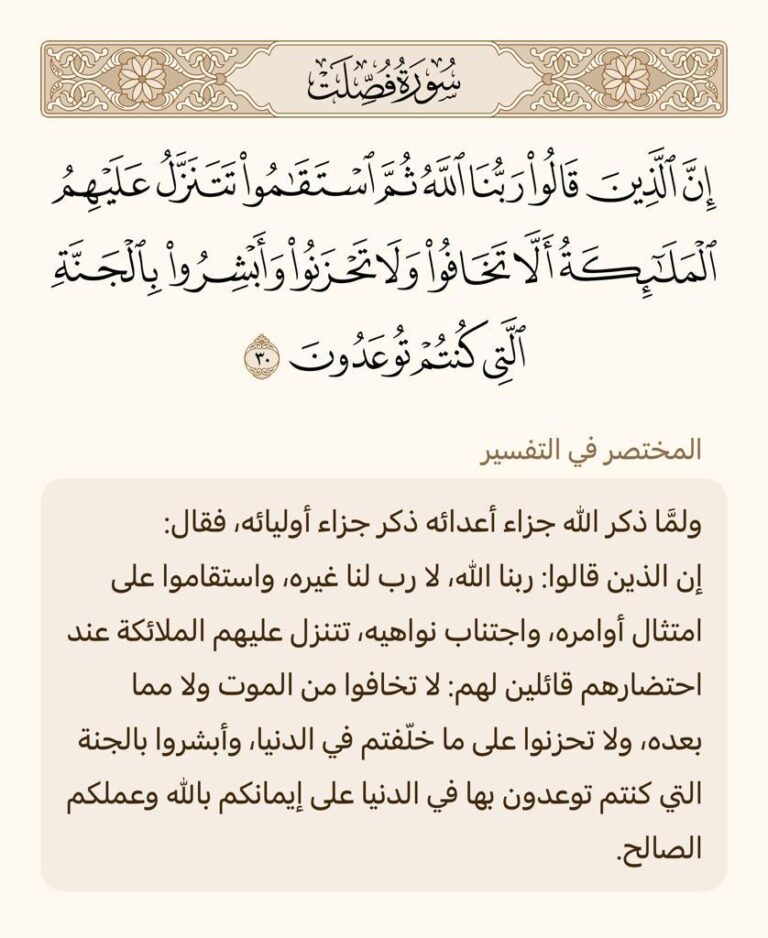 سُورَةُ فُصِّلَتْ
إِنَّ ٱلَّذِينَ قَالُوا۟ رَبُّنَا ٱللَّهُ ثُمَّ ٱسْتَقَٰمُوا۟ تَتَنَزَّلُ عَلَيْهِمُ
ٱلْمَلَٰٓئِكَةُ أَلَّا تَخَافُوا۟ وَلَا تَحْزَنُوا۟ وَأَبْشِرُوا۟ بِٱلْجَنَّةِ
ٱلَّتِى كُنتُمْ تُوعَدُونَ ٣٠
المختصر في التفسير
ولمَّا ذكر الله جزاء أعدائه ذكر جزاء أوليائه، فقال:
إن الذين قالوا: ربنا الله، لا رب لنا غيره، واستقاموا على
امتثال أوامره، واجتناب نواهيه، تتنزل عليهم الملائكة عند
احتضارهم قائلين لهم: لا تخافوا من الموت ولا مما
بعده، ولا تحزنوا على ما خلّفتم في الدنيا، وأبشروا بالجنة
التي كنتم توعدون بها في الدنيا على إيمانكم بالله وعملكم
الصالح.